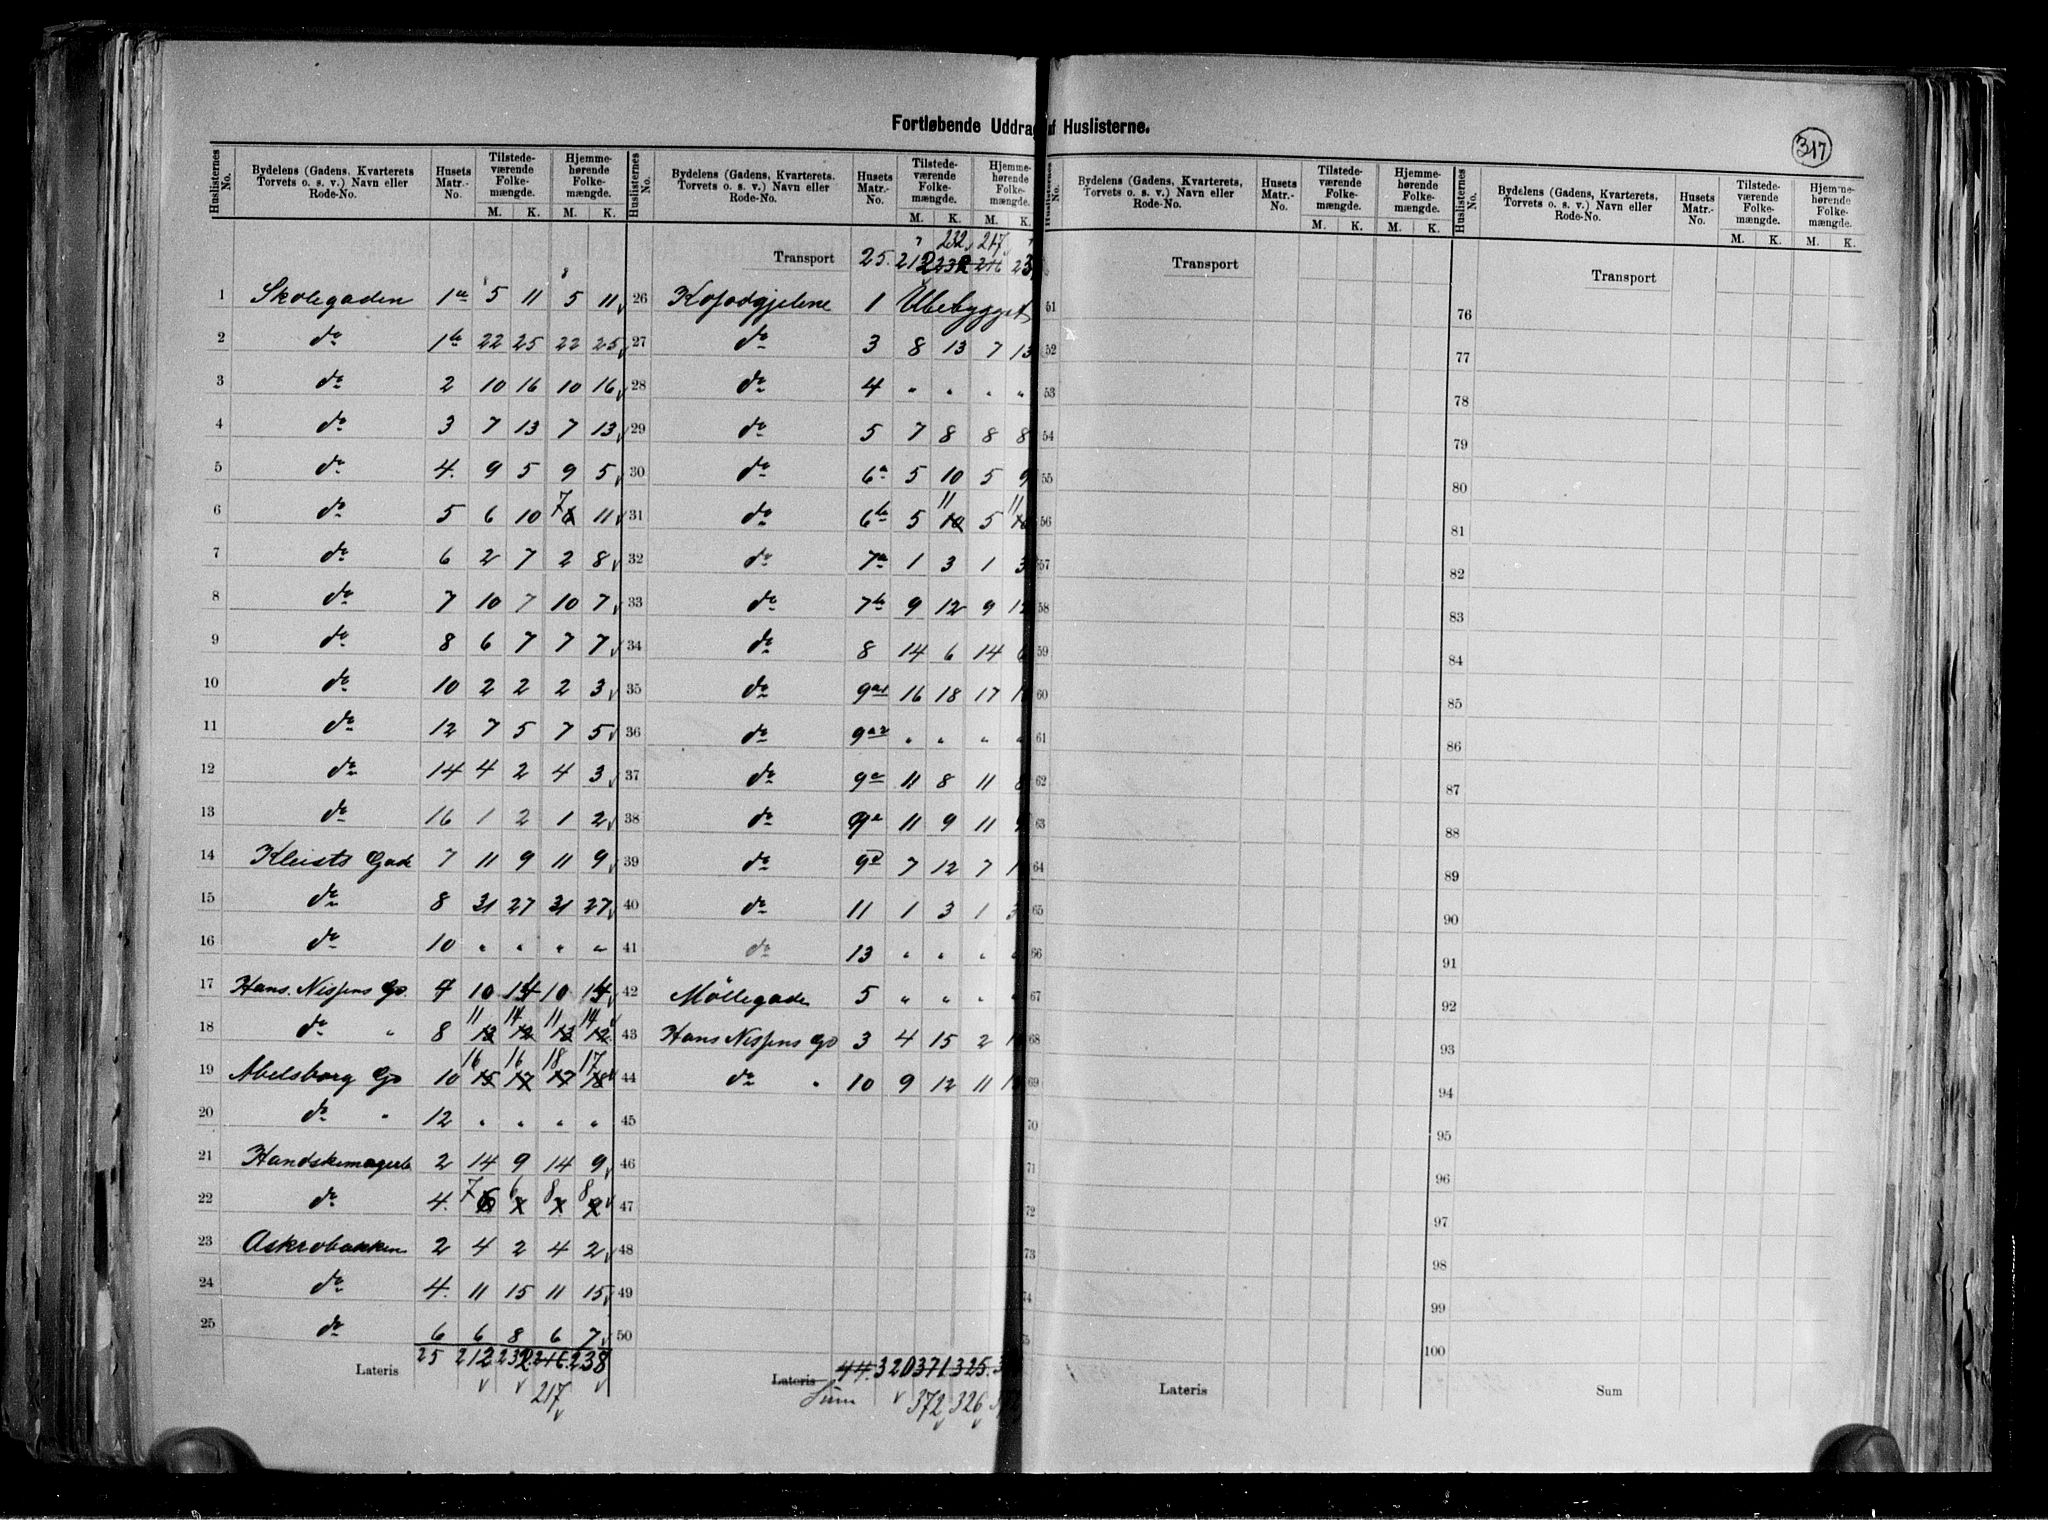 Fortløbende Uddrag af Huslisterne.
317
Huslisternes No. | Bydelens (Gadens, Kvarterets, Torvets o. s. v.) Navn eller Rode-No. | Husets Matr.-No. | Tilstedeværende Folkemængde. M. K. | Hjemmehørende Folkemængde. M. K.
1 Skolegaden 1a 5 11 5 11
2 do 1b 22 25 22 25
3 do 2 10 16 10 16
4 do 3 7 13 7 13
5 do 4. 9 5 9 5
6 do 5 6 10 7 11
7 do 6 2 7 2 8
8 do 7 10 7 10 7
9 do 8 6 7 7 7
10 do 10 2 2 2 3
11 do 12 7 5 7 5
12 do 14 4 2 4 3
13 do 16 1 2 1 2
14 Kleists Gade 7 11 9 11 9
15 do 8 31 27 31 27
16 do 10 " " " "
17 Hans Nissens Gd. 7 10 14 10 14
18 do " 8 11 14 11 14
13 12 13 12
19 Abelsborg Gd 10 16 16 18 17
15 17 17 18
20 do " 12 " " " "
21 Handskemagerb 2 14 9 14 9
22 do 4. 7 6 8 8
23 Askrobakken 2 4 2 4 2
24 do 4. 11 15 11 15
25 do 6 6 8 6 7
Lateris 25 212 232 216 238
217
Huslisternes No. | Bydelens (Gadens, Kvarterets, Torvets o. s. v.) Navn eller Rode-No. | Husets Matr.-No. | Tilstedeværende Folkemængde. M. K. | Hjemmehørende Folkemængde. M. K.
232 217
Transport 25. 212 216 23
26 Kofodgjelene 1 Ubebygget
27 do 3 8 13 7 13
28 do 4 " " " "
29 do 5 7 8 8 8
30 do 6a 5 10 5 9
31 do 6b 5 11 5 11
32 do 7a 1 3 1 3
33 do 7b 9 12 9 12
34 do 8 14 6 14 6
35 do 9a1 16 18 17
36 do 9a2 " " " "
37 do 9c 11 8 11 8
38 do 11 9 11 9
39 do 9d 7 12 7
40 do 11 1 3 1 3
41 do 13 " " " "
42 Möllegade 5 " " " "
43 Hans Nissens Gd 3 4 15 2
44 do " 10 9 12 11
45
46
47
48
49
50
Lateris 44. 320 371 325.
Sum 372 326
Huslisternes No. | Bydelens (Gadens, Kvarterets, Torvets o. s. v.) Navn eller Rode-No. | Husets Matr.-No. | Tilstedeværende Folkemængde. M. K. | Hjemmehørende Folkemængde. M. K.
Transport
51
52
53
54
55
56
57
58
59
60
61
62
63
64
65
66
67
68
69
70
71
72
73
74
75
Lateris
Huslisternes No. | Bydelens (Gadens, Kvarterets, Torvets o. s. v.) Navn eller Rode-No. | Husets Matr.-No. | Tilstedeværende Folkemængde. M. K. | Hjemmehørende Folkemængde. M. K.
Transport
76
77
78
79
80
81
82
83
84
85
86
87
88
89
90
91
92
93
94
95
96
97
98
99
100
Sum